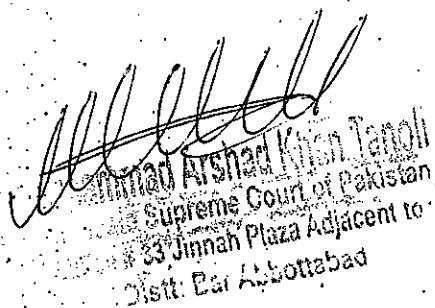 Arshad Khan Tanoli
Supreme Court of Pakistan
33 Jinnah Plaza Adjacent to
Distt: Bar Abbottabad